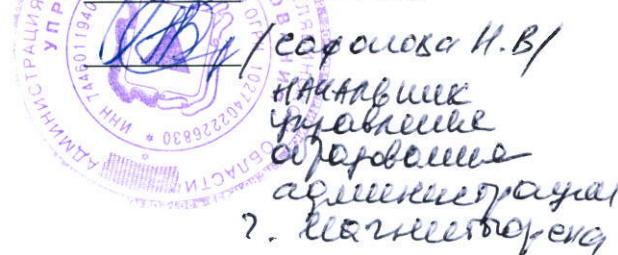 /Сафонова Н.В/
НАЧАЛЬНИК
управления
образования
администрации
г. Магнитогорска
АДМИНИСТРАЦИЯ
ОБЛАСТИ
ОГРН 1027402226830 * ИНН